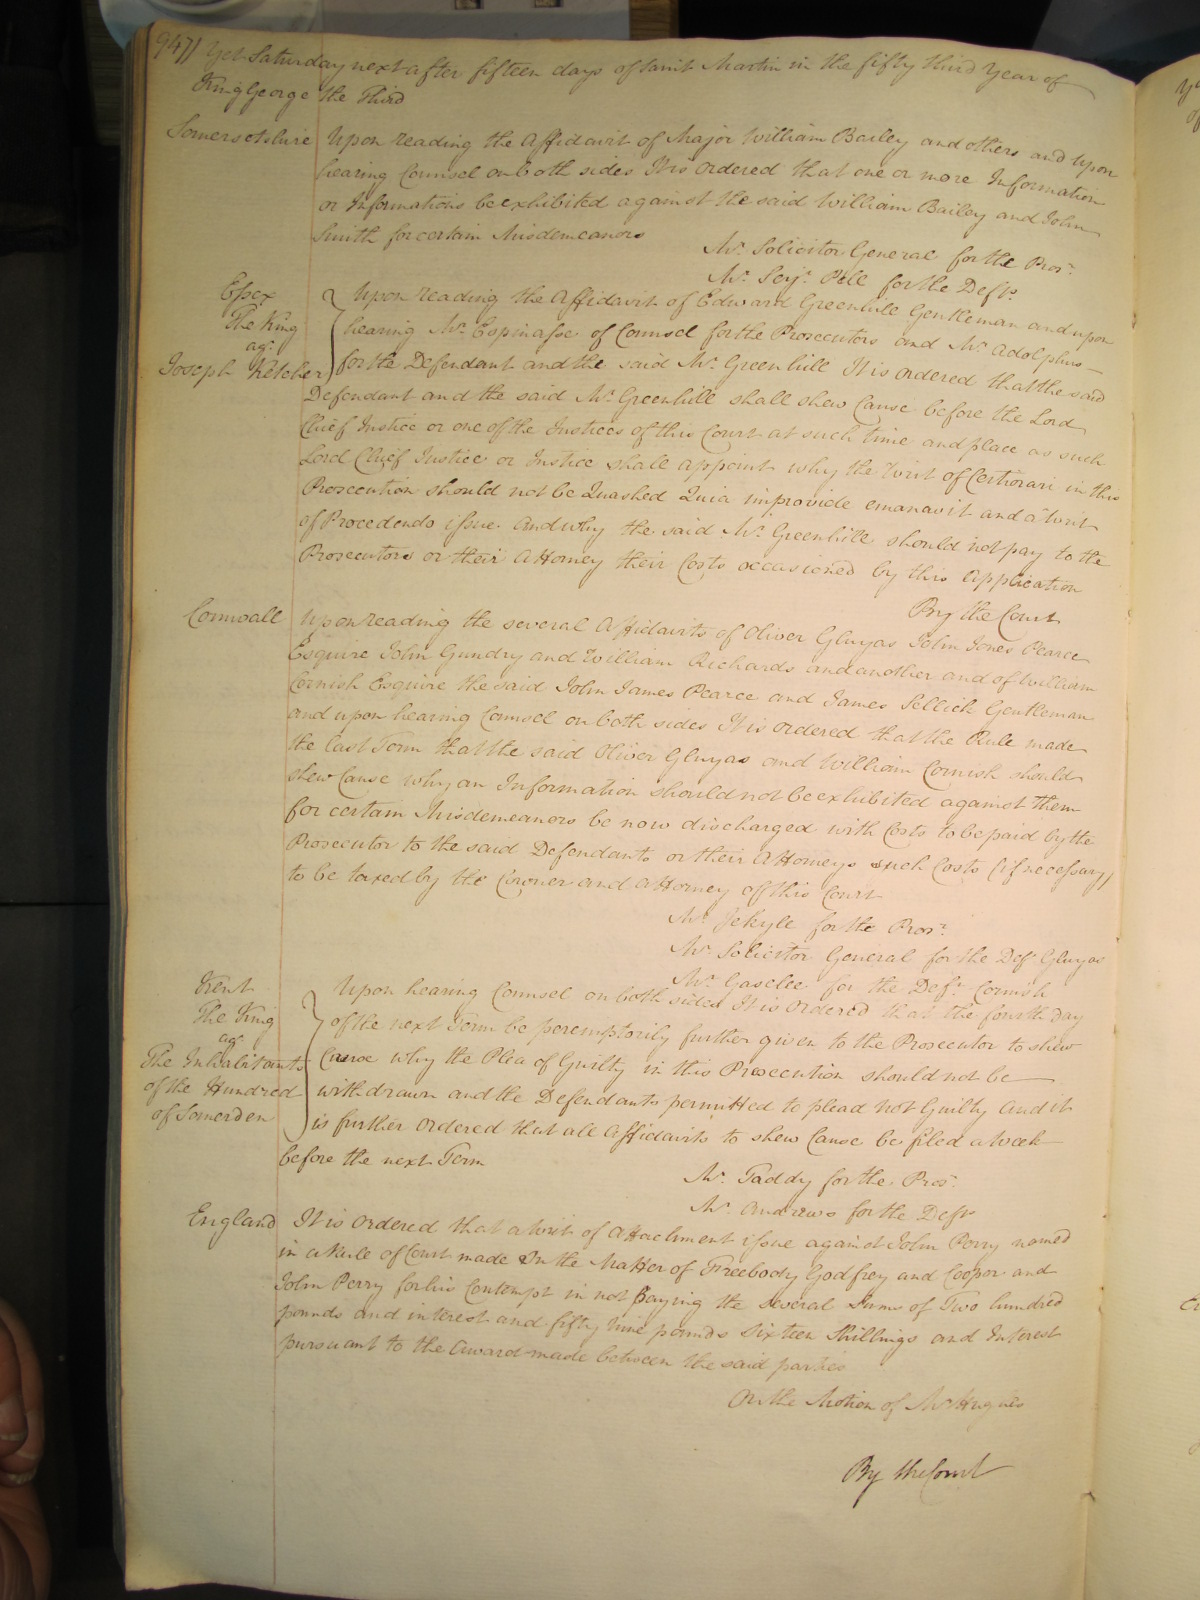 947 Yet Saturday next after fifteen days of Saint Martin in the fifty third Year of
King George the Third
Somersetshire Upon reading the Affidavit of Major William Bailey and others and upon
hearing Counsel on both sides It is ordered that one or more Information
or Informations be exhibited against the said William Bailey and John
Smith for certain Misdemeanors
Mr. Solicitor General for the Prosr.
Mr. Serjt. Pell for the Defts.
Essex Upon reading the Affidavit of Edward Greenhill Gentleman and upon
The King hearing Mr. Espinasse of Counsel for the Prosecutors and Mr. Adolphus
agt.
Joseph Ketcher for the Defendant and the said Mr. Greenhill It is ordered that the said
Defendant and the said Mr. Greenhill shall shew Cause before the Lord
Chief Justice or one of the Justices of this Court at such time and place as such
Lord Chief Justice or Justice shall appoint why the Writ of Certiorari in this
Prosecution should not be Quashed Quia improvide emanavit and a Writ
of Procedendo issue and why the said Mr. Greenhill should not pay to the
Prosecutors or their Attorney their Costs occasioned by this Application
By the Court
Cornwall Upon reading the several Affidavits of Oliver Gluyas John Jones Pearce
Esquire John Gundry and William Richards and another and of William
Cornish Esquire the said John James Pearce and James Sellick Gentleman
and upon hearing Counsel on both sides It is ordered that the Rule made
the last Term that the said Oliver Gluyas and William Cornish should
shew Cause why an Information should not be exhibited against them
for certain Misdemeanors be now discharged with Costs to be paid by the
Prosecutor to the said Defendants or their Attorneys such Costs (if necessary)
to be taxed by the Coroner and Attorney of this Court
Mr. Jekyle for the Prosr.
Mr. Solicitor General for the Deft. Gluyas
Mr. Gaselee for the Deft. Cornish
Kent Upon hearing Counsel on both sides It is ordered that the fourth day
The King of the next Term be peremptorily further given to the Prosecutor to shew
agt.
The Inhabitants Cause why the Plea of Guilty in this Prosecution should not be
of the Hundred withdrawn and the Defendants permitted to plead not Guilty And it
of Somerden is further ordered that all Affidavits to shew Cause be filed a Week
before the next Term
Mr. Taddy for the Prosr.
Mr. Andrews for the Defts
England It is ordered that a Writ of Attachment issue against John Perry named
in a Rule of Court made In the Matter of Freebody Godfrey and Cooper and
John Perry for his Contempt in not paying the several Sums of Two hundred
pounds and interest and fifty nine pounds sixteen Shillings and Interest
pursuant to the Award made between the said parties
On the Motion of Mr Hughes
By the Court